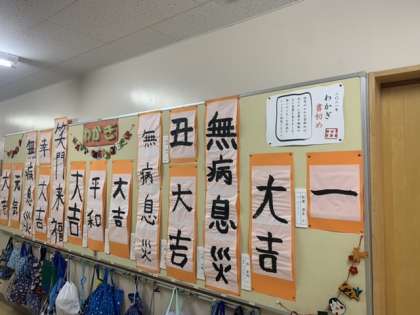 二〇二一年
わかぎ
書初め
一
大吉
無病息災
丑
大吉
無病息災
わかぎ
大吉
平和
大吉
笑門来福
幸
大吉
無病息災
元気
大吉